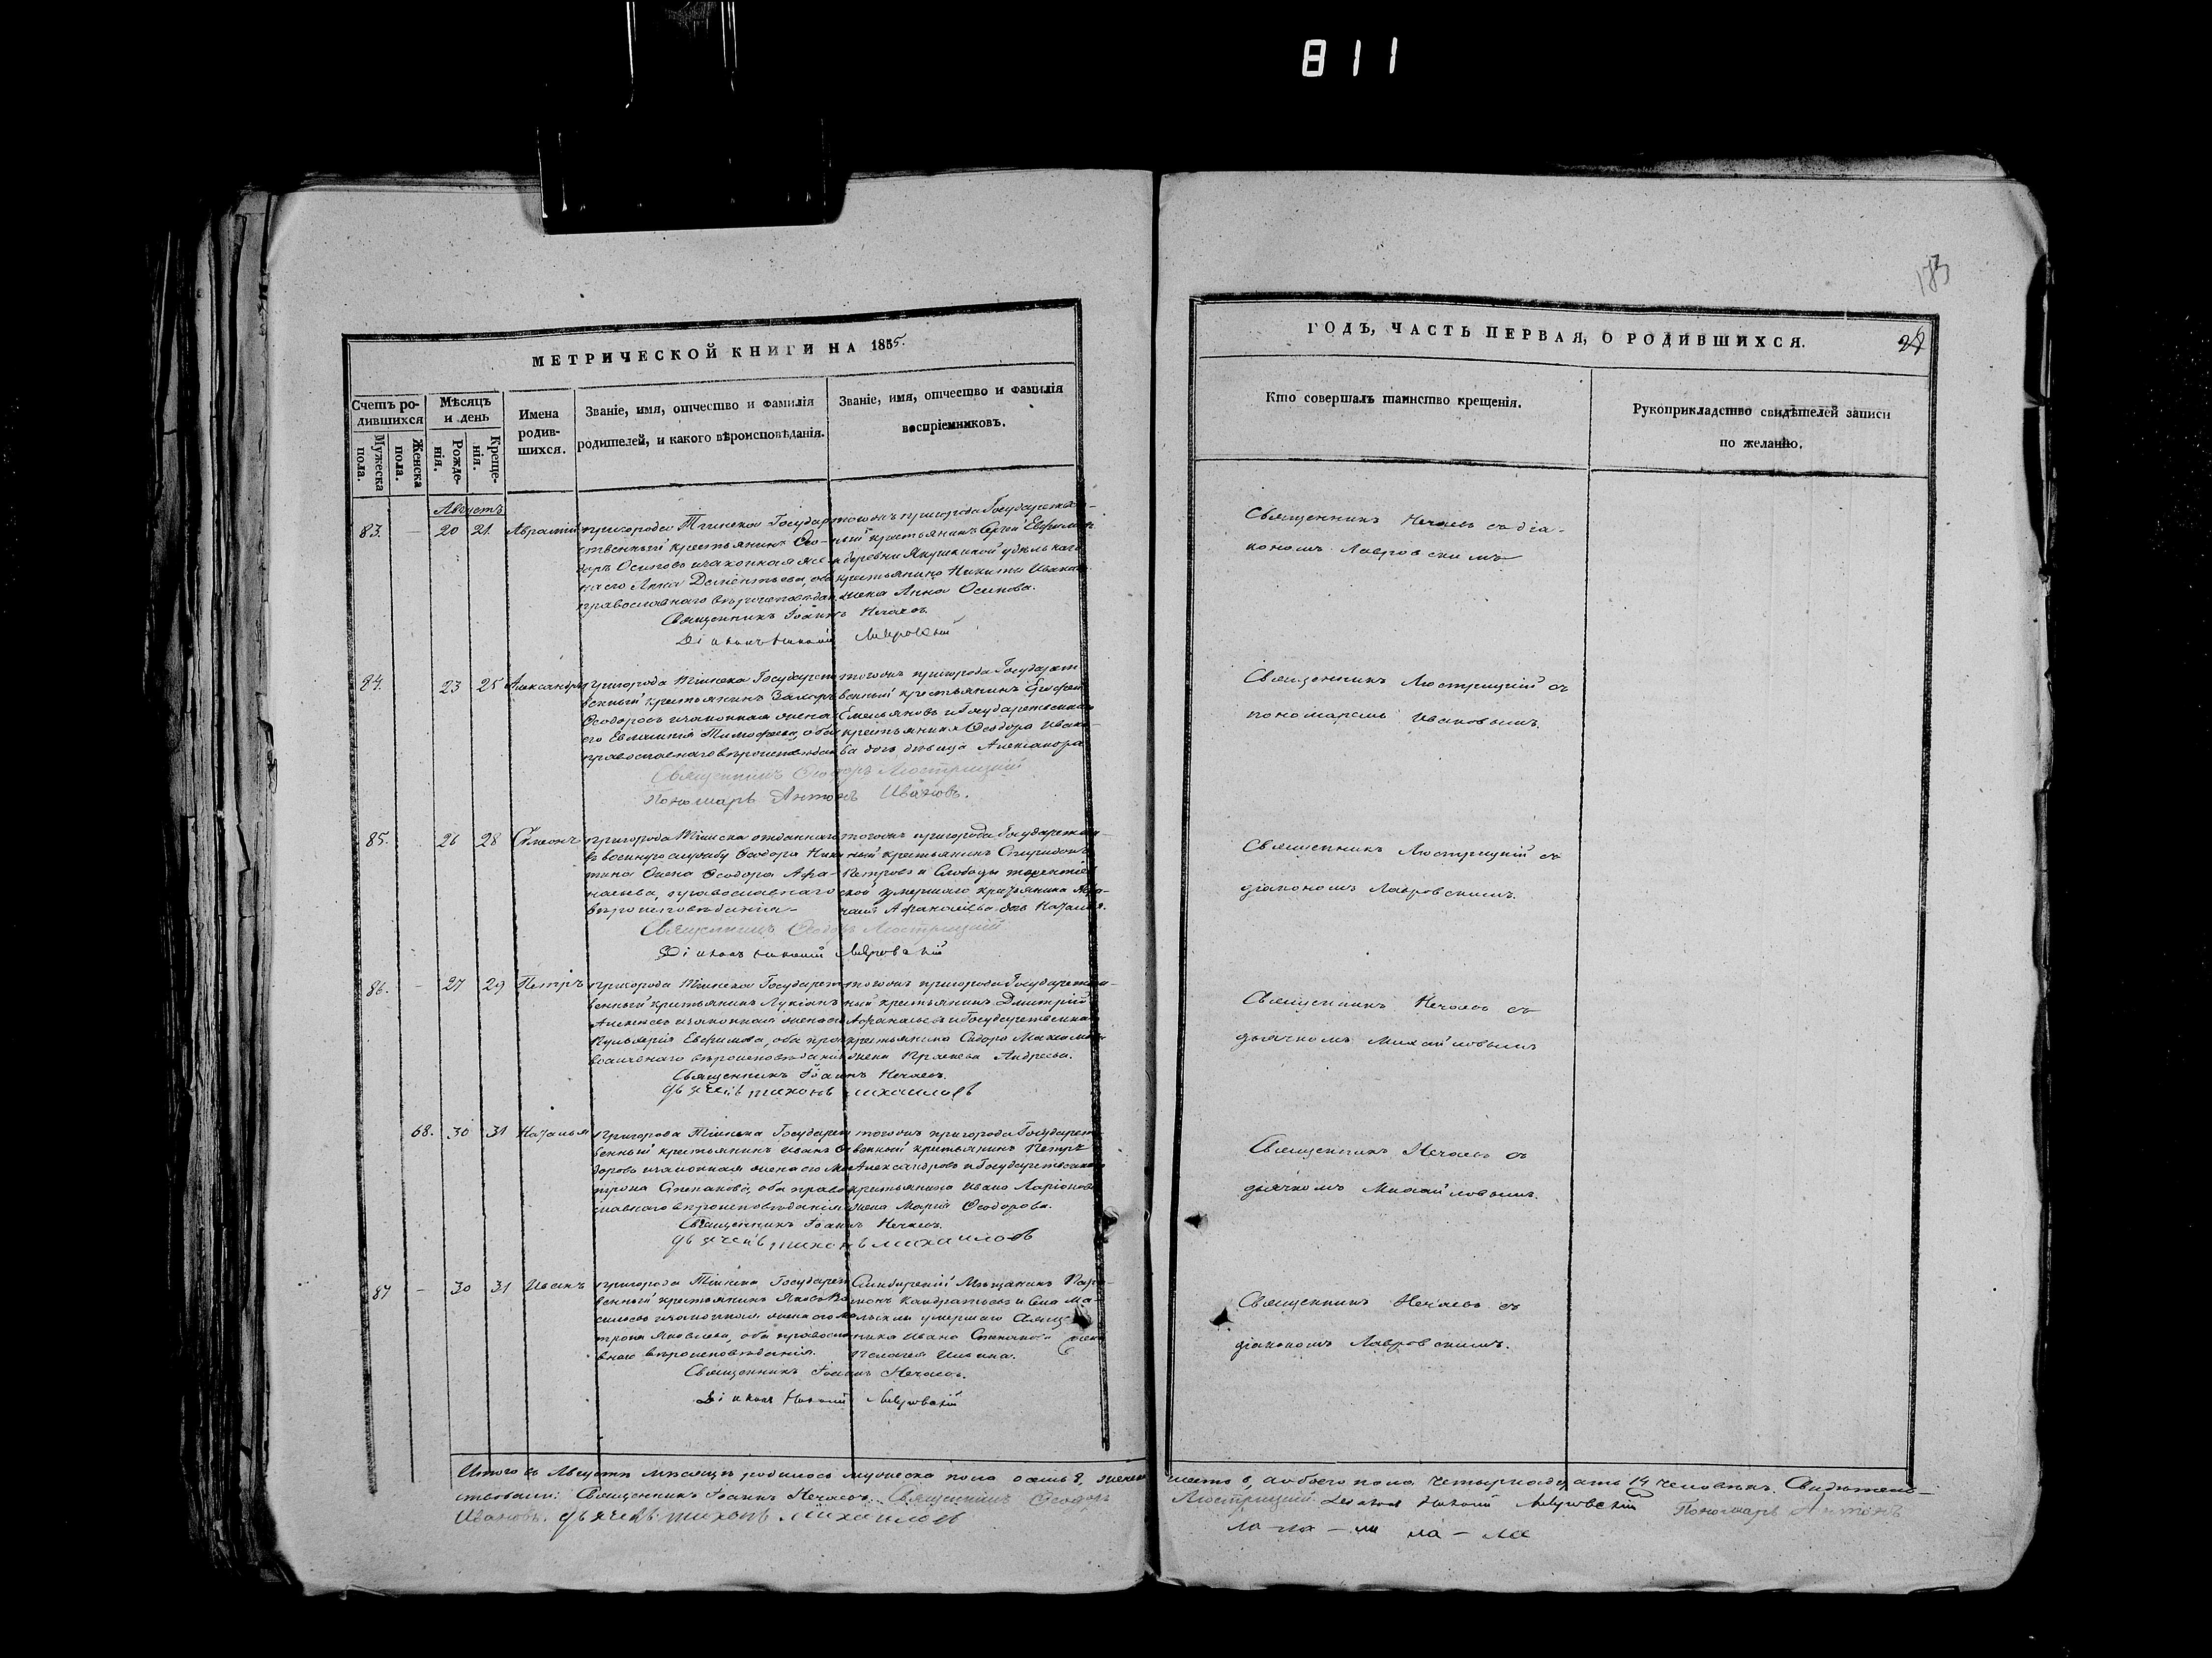 811
173
МЕТРИЧЕСКОЙ КНИГИ НА 1855.
ГОДЪ, ЧАСТЬ ПЕРВАЯ, О РОДИВШИХСЯ.
Счетъ ро-
дившихся
Мужеска пола.
Женска пола.
Мѣсяцъ
и день
Рожде-
нія.
Креще-
нія.
Имена
родив-
шихся.
Званіе, имя, отчество и фамилія
родителей, и какого вѣроисповѣданія.
Званіе, имя, отчество и фамилія
воспріемниковъ.
Кто совершалъ таинство крещенія.
Рукоприкладство свидѣтелей записи
по желанію.
Августъ
83. – 20 21. Аврамій
пригорода Тіинска Государ
ственный крестьянинъ Ѳео-
доръ Осиповъ и законная же
на его Анна Дементьева, оба
православнаго вѣроисповѣдан
тогожъ пригорода Государствен-
ный крестьянинъ Сергей Евфимов
и деревни Якушкиной удѣльнаго
крестьянина Никиты Иванова
жена Анна Осипова.
Священникъ Іоаннъ Нечаевъ
Діаконъ Лавровскій
Священникъ Нечаевъ съ діа-
кономъ Лавровскимъ
84. 23 25 Александръ
пригорода Тіинска Государст
венный крестьянинъ Захаръ
Ѳеодоровъ и законная жена
его Евлампія Тимофеева, оба
православнаго вѣроисповѣдан
тогожъ пригорода Государст
венный крестьянинъ
Емельяновъ и Государственнаго
крестьянина Ѳеодора Ивано-
ва дочь дѣвица Александра
Священникъ Ѳеодоръ Люстрицкій
Пономарь Антонъ Ивановъ.
Священникъ Люстрицкій съ
пономаремъ Ивановымъ.
85. 26 28 Симеонъ
пригорода Тіинска отданнаго
въ военную службу Ѳеодора Ники
тина жена Ѳеодора Афа-
насьева, православнаго
вѣроисповѣданія-
тогожъ пригорода Государствен-
ный крестьянинъ Спиридонъ
Петровъ и Слободы
ской умершаго крестьянина
Афанасьева дочь Наталья.
Священникъ Ѳеодоръ Люстрицкій
Діаконъ Лавровскій
Священникъ Люстрицкій съ
діакономъ Лавровскимъ.
86. – 27 29 Петръ
пригорода Тіинска Государст
венный крестьянинъ Лукіанъ
Алексѣевъ и законная жена его
Пульхерія Евфимова, оба пра
вославнаго вѣроисповѣданія
тогожъ пригорода Государствен-
ный крестьянинъ Дмитрій
Афанасьевъ и Государственнаго
крестьянина Сидора Максимова
жена Прасковья Андреева.
Священникъ Іоаннъ Нечаевъ.
дьячекъ тихонъ михаиловъ
Священникъ Нечаевъ съ
дьячкомъ Михайловымъ
68. 30 31 Наталья
Пригорода Тіинска Государст
венный крестьянинъ Иванъ Ѳе
доровъ и законная жена его Ма
трона Степанова, оба право
славнаго вѣроисповѣданія
тогожъ пригорода Государст-
венный крестьянинъ Петръ
Александровъ и Государственнаго
крестьянина Ивана Ларіонова
жена Марія Ѳеодорова.
Священникъ Іоаннъ Нечаевъ.
дьячекъ тихонъ михаиловъ
Священникъ Нечаевъ съ
дьячкомъ Михайловымъ.
87 – 30 31 Иванъ
пригорода Тіинска Государст
венный крестьянинъ Яковъ Ва
сильевъ и законная жена его Ма
трона Яковлева, оба правосла
внаго вѣроисповѣданія.
Симбирскій Мѣщанинъ
Кандратьевъ и
умершаго
Ивана Степанова жена
Пелагея Ильина.
Священникъ Іоаннъ Нечаевъ.
Діаконъ Лавровскій
Священникъ Нечаевъ съ
діакономъ Лавровскимъ.
Итого въ Августѣ мѣсяцѣ родилось мужеска пола осмь 8, женска шесть 6, а обоего пола четырнадцать 14 человѣкъ. Свидѣтель-
ствовали: Священникъ Іоаннъ Нечаевъ. Священникъ Ѳеодоръ Люстрицкій. Діаконъ Лавровскій Пономарь Антонъ
Ивановъ. дьячекъ тихонъ михаиловъ